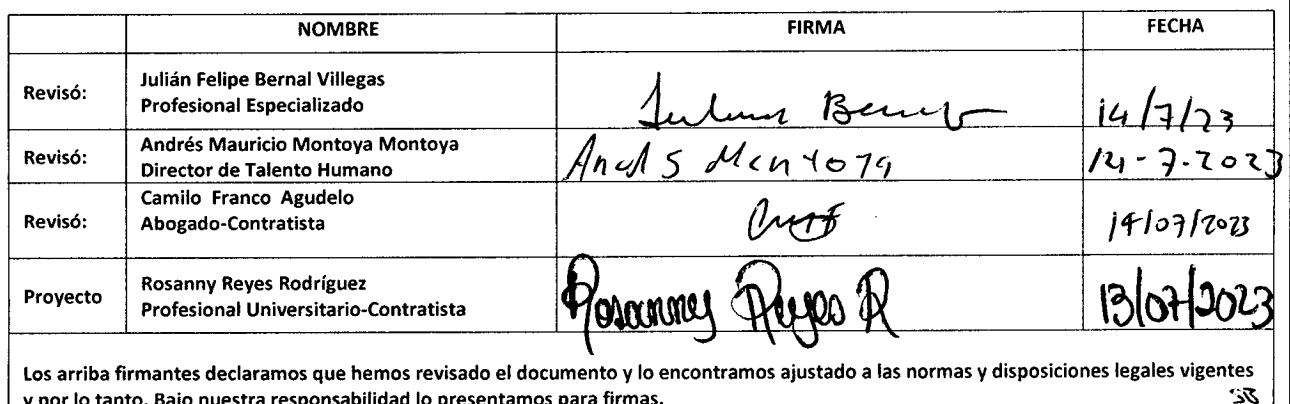 NOMBRE FIRMA FECHA
Revisó: Julián Felipe Bernal Villegas
Profesional Especializado
Julian Bernal 14/7/23
Revisó: Andrés Mauricio Montoya Montoya
Director de Talento Humano
Andrés Montoya 14-7-2023
Revisó: Camilo Franco Agudelo
Abogado-Contratista
14/07/2023
Proyecto Rosanny Reyes Rodríguez
Profesional Universitario-Contratista
Rosanny Reyes R 13/07/2023
Los arriba firmantes declaramos que hemos revisado el documento y lo encontramos ajustado a las normas y disposiciones legales vigentes
y por lo tanto. Bajo nuestra responsabilidad lo presentamos para firmas.